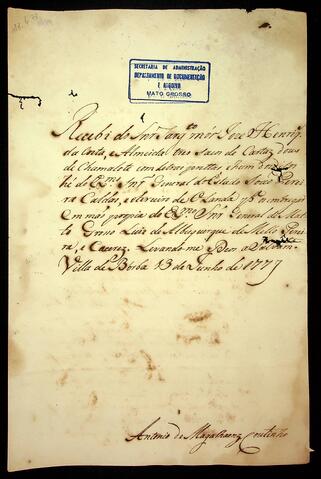 SECRETARIA DE ADMINISTRAÇÃO
DEPARTAMENTO DE DOCUMENTAÇÃO
E ARQUIVO
MATO GROSSO
Recebi do Snr. Sarg.to mór Joze Henriq
da Costa, e Almeida tres Sacos de Cartaz dous
de Chamalote com letras pretas, e hum
he do Ex.mo Snr. General do Estado João Perei
ra Caldas, e de vaim de Olanda p.a entregar
em mão propria do Ex.mo Snr. General de Mat
to Groso Luis de Albuquerque de Mello Perei
ra, e Caceres. Levando-me Deos a Salvam.
Villa de Borba 13 de Junho de 1777
Antonio de Magalhaens Coutinho